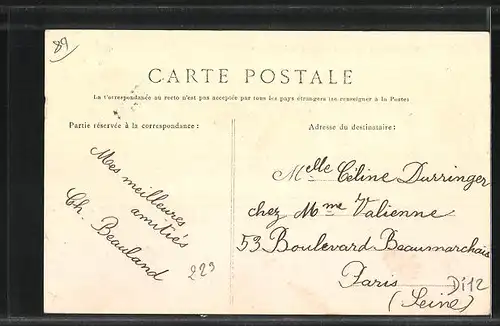 89
CARTE POSTALE
La Correspondance au recto n'est pas acceptée par tous les pays étrangers (se renseigner à la Poste)
Partie réservée à la correspondance :
Adresse du destinataire :
Mes meilleures
amitiés
Ch. Beauland
223
Melle Céline Durringer
chez Mme Valienne
53 Boulevard Beaumarchais
Paris
(Seine)
Di12